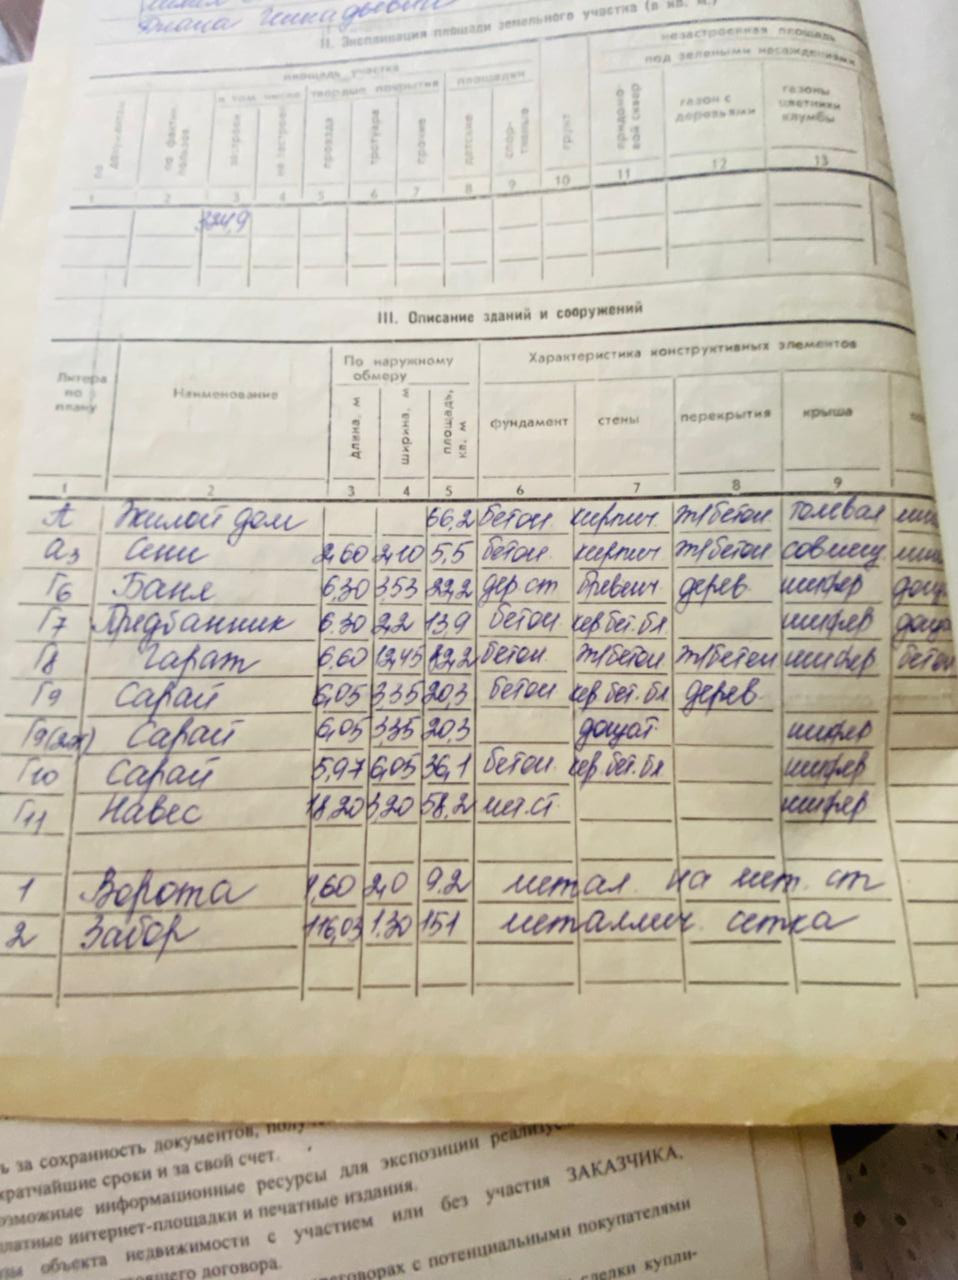 II. Экспликация площади земельного участка (в кв. м.)
площадь участка незастроенная площадь
в том числе твердые покрытия площадки под зелеными насаждениями
по документам по фактич. пользов. застроен. не застроен. проезда тротуара прочие детские спортивные грунт придомовой сквер газон с деревьями газоны цветники клумбы
1 2 3 4 5 6 7 8 9 10 11 12 13
324,9
III. Описание зданий и сооружений
Литера по плану Наименование По наружному обмеру Характеристика конструктивных элементов
длина, м ширина, м площадь, кв. м фундамент стены перекрытия крыша
1 2 3 4 5 6 7 8 9
А Жилой дом 66,2 бетон кирпич ж/бетон толевая
а3 Сени 2,60 2,10 5,5 бетон. кирпич ж/бетон совмещ
Г6 Баня 6.30 3.53 22,2 дер ст бревенч. дерев. шифер
Г7 Предбанник 6.30 2,2 13,9 бетон кер бет. бл шифер
Г8 Гараж 6.60 12,45 82,2 бетон. ж/бетон ж/бетон шифер бетон
Г9 Сарай 6,05 3.35 20,3 бетон кер бет. бл дерев.
Г9(2эт) Сарай 6,05 3,35 20,3 дощат. шифер
Г10 Сарай 5,97 6,05 36,1 бетон. кер бет. бл шифер
Г11 Навес 18,20 3,20 58,2 мет.ст шифер
1 Ворота 4,60 2,0 9.2 метал. на мет. ст
2 Забор 116,03 1.30 151 металлич. сетка
за сохранность документов,
кратчайшие сроки и за свой счет.
возможные информационные ресурсы для экспозиции
платные интернет-площадки и печатные издания.
объекта недвижимости с участием или без участия ЗАКАЗЧИКА,
договора.
с потенциальными покупателями
сделки купли-